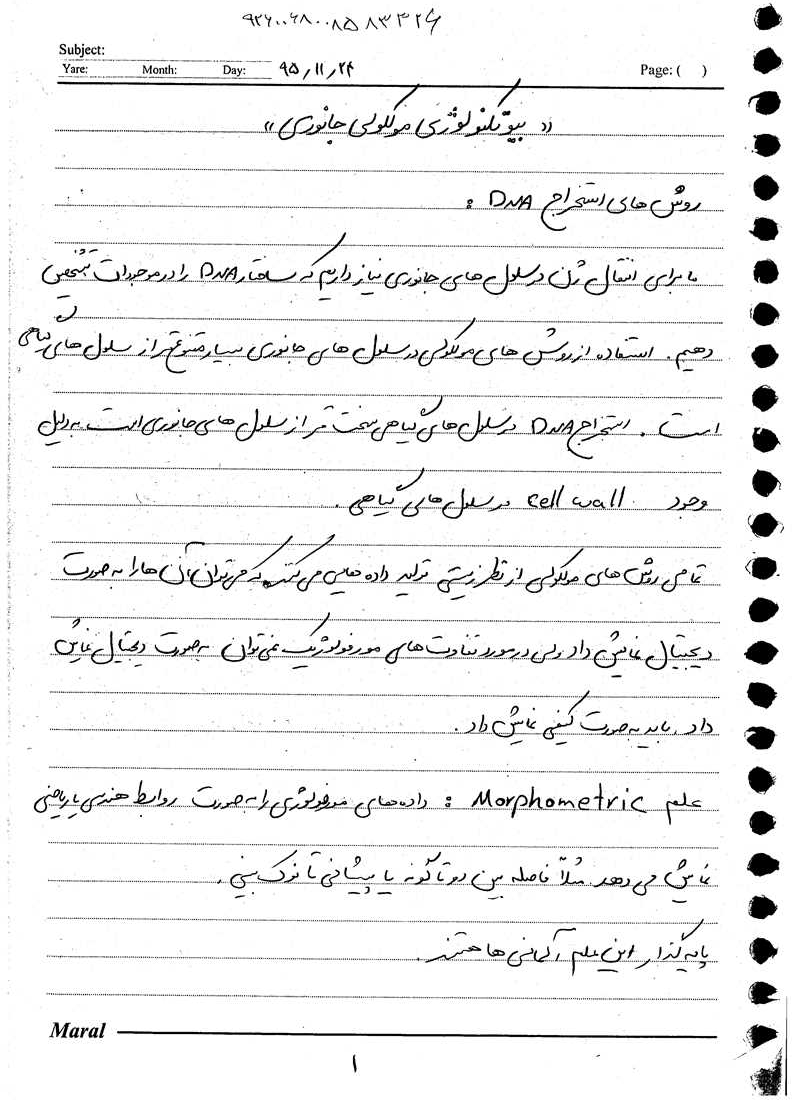 ۹۲۶۰۰۶۸۰۰۸۵۸۳۳۲۶
Subject:
Yare: Month: Day: ۹۵/۱۱/۲۴ Page: ( )
«بیوتکنولوژی مولکولی جانوری»
روش های استخراج DNA :
ما برای انتقال ژن در سلول های جانوری نیاز داریم که ساختار DNA را در موجودات تشخیص
دهیم. استفاده از روش های مولکولی در سلول های جانوری بسیار متنوع تر از سلول های گیاهی
است. استخراج DNA در سلول های گیاهی سخت تر از سلول های جانوری است به دلیل
وجود cell wall در سلول های گیاهی.
تمامی روش های مولکولی از نظر زیستی تولید داده هایی می کنند که می توان آن ها را به صورت
دیجیتال نمایش داد ولی در مورد تفاوت های مورفولوژیک نمی توان به صورت دیجیتال نمایش
داد. باید به صورت کیفی نمایش داد.
علم Morphometric : داده های مورفولوژی را به صورت روابط هندسی یا ریاضی
نمایش می دهد مثلاً فاصله بین دو تا گونه یا پیشانی تا نوک بینی.
پایه گذار این علم آلمانی ها هستند.
Maral
۱